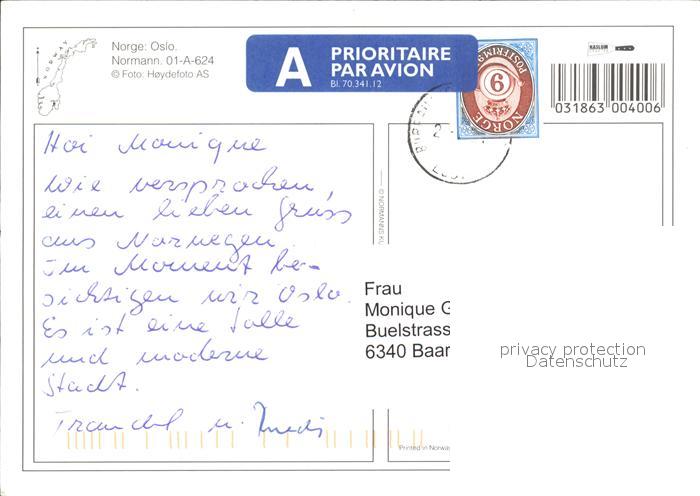 Norge: Oslo.
Normann. 01-A-624
© Foto: Høydefoto AS
NORWAY
A PRIORITAIRE
PAR AVION
Bl. 70.341.12
POSTFRIM
9
NORGE
HASLUM
031863 004006
Hoi Monique
Wie versprochen,
einen lieben Gruss
aus Norwegen.
Im Moment be-
sichtigen wir Oslo.
Es ist eine tolle
und moderne
Stadt.
u.
© NORMANNS KU
Frau
Monique G
Buelstrass
6340 Baar
privacy protection
Datenschutz
Printed in Norway